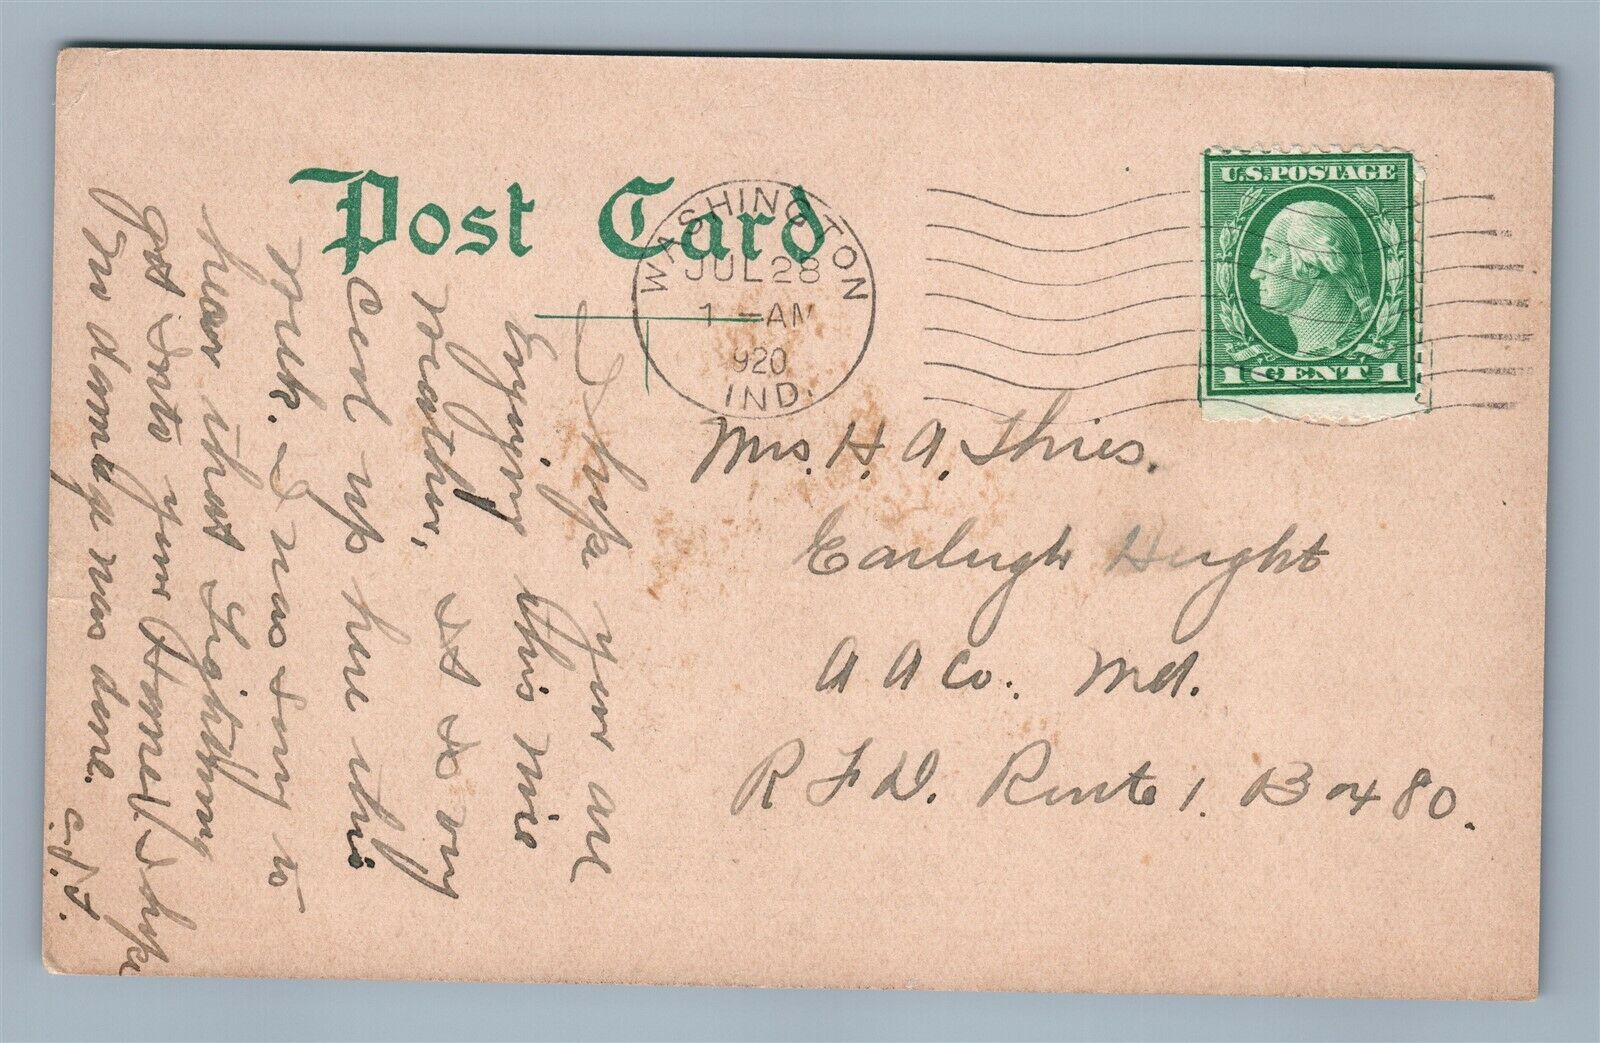 Post Card
WASHINGTON
JUL 28
1 - AM
920
IND.
U.S. POSTAGE
1 CENT 1
Mrs. H. A. Thies.
Earleigh Height
A A Co. Md.
R F D. Route 1. Box 80.
I hope you are
Enjoying this nice
Weather, It is very
Cool up here this
week. I was sorry to
hear that Lightning
got into your Home I hope
no damage was done.